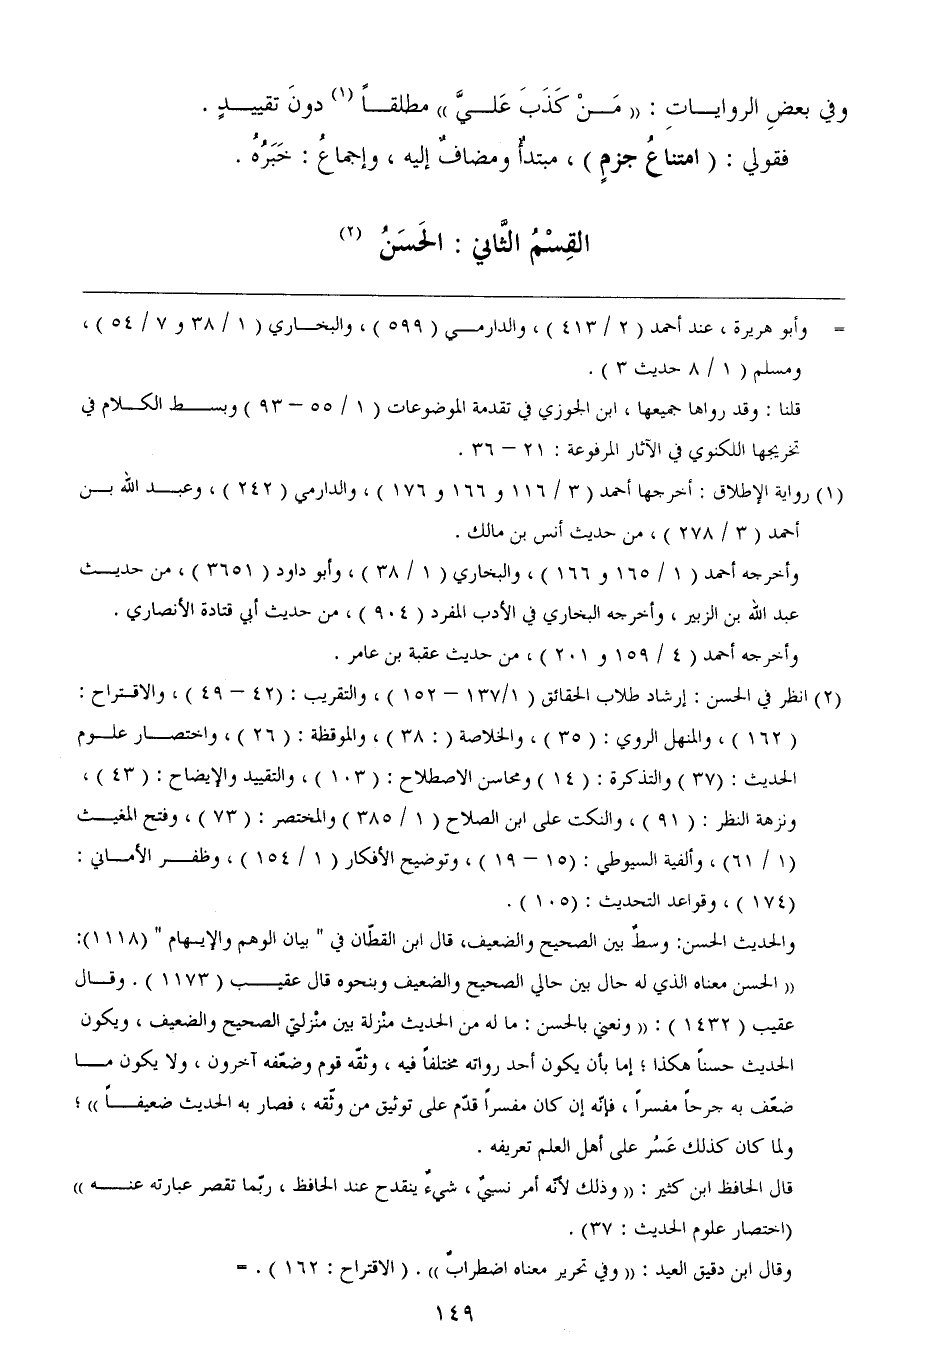 وفي بعضِ الرواياتِ : « مَنْ كَذَبَ عَليَّ » مطلقاً (١) دونَ تقييدٍ .
فقولي : ( امتناعُ جزمٍ ) ، مبتدأٌ ومضافٌ إليه ، وإجماعُ : خَبَرُهُ .
القِسْمُ الثَّاني : الحَسَنُ (٢)
= وأبو هريرة ، عند أحمد ( ٢ / ٤١٣ ) ، والدارمي ( ٥٩٩ ) ، والبخاري ( ١ / ٣٨ و ٧ / ٥٤ ) ،
ومسلم ( ١ / ٨ حديث ٣ ) .
قلنا : وقد رواها جميعها ، ابن الجوزي في تقدمة الموضوعات ( ١ / ٥٥ – ٩٣ ) وبسط الكلام في
تخريجها اللكنوي في الآثار المرفوعة : ٢١ – ٣٦ .
(١) رواية الإطلاق : أخرجها أحمد ( ٣ / ١١٦ و ١٦٦ و ١٧٦ ) ، والدارمي ( ٢٤٢ ) ، وعبد الله بن
أحمد ( ٣ / ٢٧٨ ) ، من حديث أنس بن مالك .
وأخرجه أحمد ( ١ / ١٦٥ و ١٦٦ ) ، والبخاري ( ١ / ٣٨ ) ، وأبو داود ( ٣٦٥١ ) ، من حديث
عبد الله بن الزبير ، وأخرجه البخاري في الأدب المفرد ( ٩٠٤ ) ، من حديث أبي قتادة الأنصاري .
وأخرجه أحمد ( ٤ / ١٥٩ و ٢٠١ ) ، من حديث عقبة بن عامر .
(٢) انظر في الحسن : إرشاد طلاب الحقائق ( ١/١٣٧ – ١٥٢ ) ، والتقريب : (٤٢ – ٤٩ ) ، والاقتراح :
( ١٦٢ ) ، والمنهل الروي : ( ٣٥ ) ، والخلاصة ( : ٣٨ ) ، والموقظة : ( ٢٦ ) ، واختصار علوم
الحديث : (٣٧ ) والتذكرة : ( ١٤ ) ومحاسن الاصطلاح : ( ١٠٣ ) ، والتقييد والإيضاح : ( ٤٣ ) ،
ونزهة النظر : ( ٩١ ) ، والنكت على ابن الصلاح ( ١ / ٣٨٥ ) والمختصر : ( ٧٣ ) ، وفتح المغيث
(١ / ٦١) ، وألفية السيوطي : (١٥ – ١٩ ) ، وتوضيح الأفكار ( ١ / ١٥٤ ) ، وظفر الأماني :
(١٧٤ ) ، وقواعد التحديث : (١٠٥ ) .
والحديث الحسن: وسطٌ بين الصحيح والضعيف، قال ابن القطّان في " بيان الوهم والإيهام " (١١١٨):
« الحسن معناه الذي له حال بين حالي الصحيح والضعيف وبنحوه قال عقيب ( ١١٧٣ ) . وقال
عقيب ( ١٤٣٢ ) : « ونعني بالحسن : ما له من الحديث منْزلة بين منْزلتي الصحيح والضعيف ، ويكون
الحديث حسناً هكذا ؛ إما بأن يكون أحد رواته مختلفاً فيه ، وثقّه قوم وضعّفه آخرون ، ولا يكون ما
ضعّف به جرحاً مفسراً ، فإنّه إن كان مفسراً قدّم على توثيق من وثّقه ، فصار به الحديث ضعيفاً » ؛
ولما كان كذلك عَسُر على أهل العلم تعريفه .
قال الحافظ ابن كثير : « وذلك لأنّه أمر نسبيٌ ، شيءٌ ينقدح عند الحافظ ، ربّما تقصر عبارته عنه »
(اختصار علوم الحديث : ٣٧) .
وقال ابن دقيق العيد : « وفي تحرير معناه اضطرابٌ » . ( الاقتراح : ١٦٢ ) . =
١٤٩